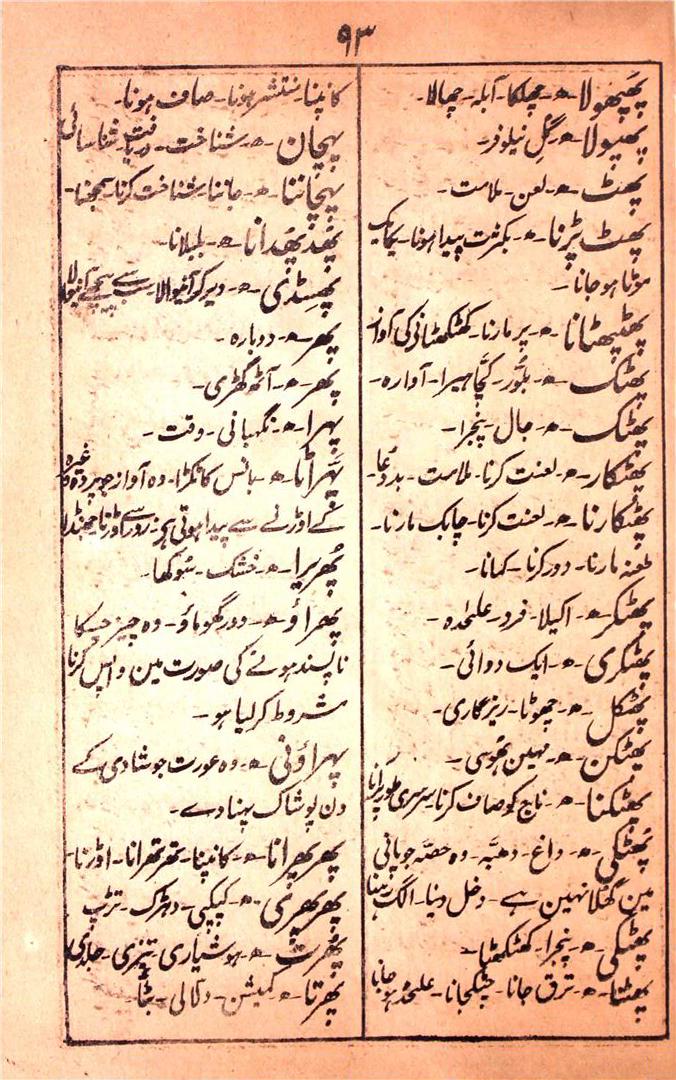 ۹۳
پھپھولا ۔ چھلکا۔ آبلہ۔ چھالا۔
پھپولا ۔ گلِ نیلوفر۔
پھٹ ۔ لعن۔ ملامت۔
پھٹ پڑنا ۔ بکثرت پیدا ہونا۔ یکایک
موٹا ہو جانا۔
پھٹپھٹانا ۔ پر مارنا۔ کھٹکھٹانی کی آواز
پھٹک ۔ بلّور۔ کچّا ہیرا۔ آوارہ۔
پھٹک ۔ جال۔ پنجرا۔
پھٹکار ۔ لعنت کرنا۔ ملامت۔ بددعا۔
پھٹکارنا ۔ لعنت کرنا۔ چابک مارنا۔
طعنہ مارنا۔ دور کرنا۔ کمانا۔
پھٹکر ۔ اکیلا۔ فرد۔ علٰحدہ۔
پھٹکری ۔ ایک دوائی۔
پھٹکل ۔ چھوٹا۔ ریزگاری۔
پھٹکن ۔ مہین بھُوسی۔
پھٹکنا ۔ ناج کو صاف کرنا۔ سرسری طور پر آنا
پھٹکی ۔ داغ۔ دھبّہ۔ وہ حصّہ جو پانی
مین گھُلا نہین ہے۔ دخل دینا۔ الگ رہنا
پھٹکی ۔ پنجرا۔ کھٹکھٹا۔
پھٹنا ۔ ترق جانا۔ چٹکجانا۔ علٰحدہ ہو جانا
کانپنا۔ منتشر ہونا۔ صاف ہونا۔
پہچان ۔ شناخت۔ دریافت۔ شناسائی
پہچاننا ۔ جاننا۔ شناخت کرنا۔ سمجھنا۔
پھدپھدانا ۔ بلبلانا۔
پھسڈی ۔ دیر کو آنیوالا۔ سب سے پیچھے آنیوالا
پھر ۔ دوبارہ۔
پھر ۔ آٹھ گھڑی۔
پہرا ۔ نگہبانی۔ وقت۔
پھراٹا ۔ بانس کا ٹکڑا۔ وہ آواز جو پردہ وغیرہ
کے اوڑنے سے پیدا ہوتی ہی۔ زور سے اوڑنا۔ جھنڈا
پھریرا ۔ خشک۔ سُوکھا۔
پھراؤ ۔ دور۔ گھوماؤ۔ وہ چیز جسکا
ناپسند ہونے کی صورت مین واپس کرنا
مشروط کر لیا ہو۔
پہراؤنی ۔ وہ عورت جو شادی کے
دن پوشاک پہنا دے۔
پھرپھرانا ۔ کانپنا۔ تھرتھرانا۔ اوڑنا۔
پھرپھری ۔ کپکپی۔ دہڑک۔ تڑپ
پھُرت ۔ ہوشیاری۔ تیزی۔ جلدی
پھرتا ۔ کمیشن۔ دلالی۔ بٹّا۔